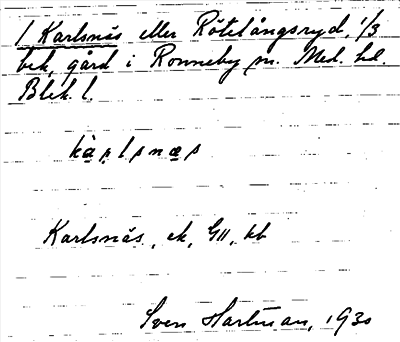 1 Karlsnäs eller Rötelångsryd, 1/3
bek. gård i Ronneby sn. Med. hd.
Blek. l.
Karlsnäs, ek, GII, kb
Sven Hartman, 1930